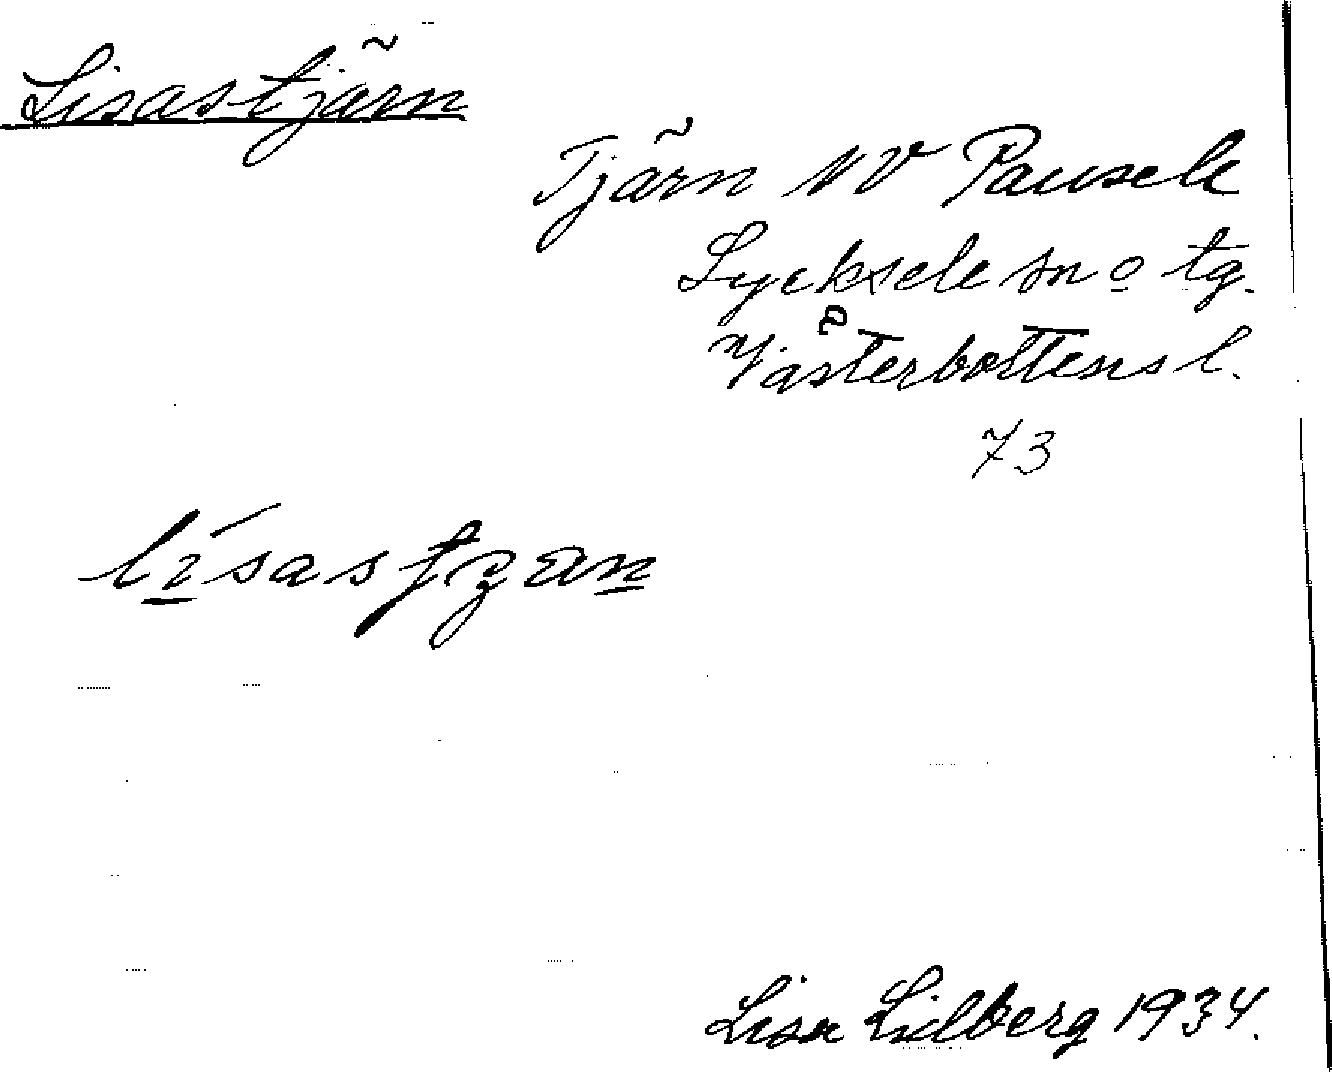 Lisastjärn
Tjärn NV Pausele
Lycksele sn o tg.
Västerbottens l.
73
Lisa Lidberg 1934.